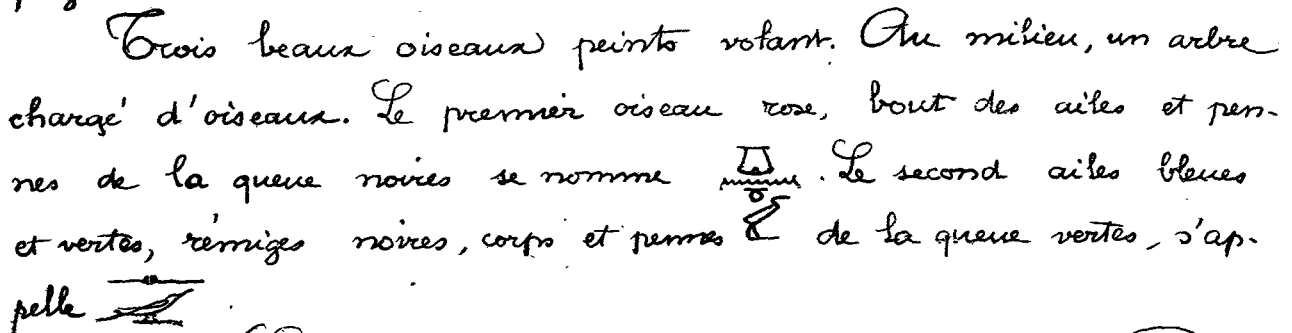 Trois beaux oiseaux peints volant. Au milieu, un arbre
chargé d'oiseaux. Le premier oiseau rose, bout des ailes et pen-
nes de la queue noires se nomme . Le second ailes bleues
et vertes, rémiges noires, corps et pennes de la queue vertes, s'ap-
pelle .